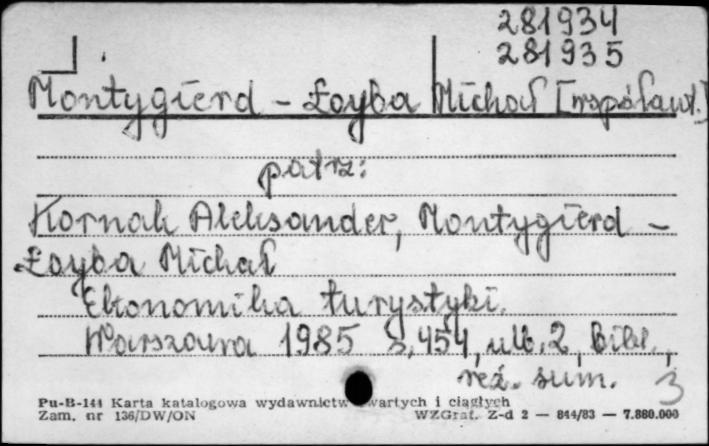 281934
281935
Montygierd - Łoyba Michał [współaut.]
patrz:
Kornak Aleksander, Montygierd -
Łoyba Michał
Ekonomika turystyki.
Warszawa 1985 s. 454, nlb. 2, Bibl.,
rez. sum. 3
Pu-B-144 Karta katalogowa wydawnictw zwartych i ciągłych
Zam. nr 136/DW/ON WZGraf. Z-d 2 — 844/83 — 7.880.000